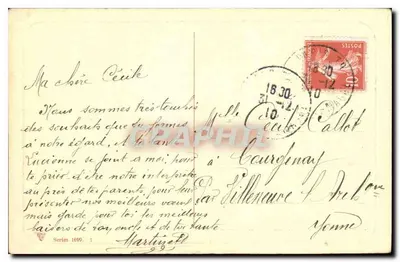 Ma chère Cécile
Nous sommes très touchés
des souhaits que tu formes
à notre égard. et ta tante
Lucienne se joint à moi, pour
te prier d'être notre interprète
au près de tes parents, pour leur
présenter nos meilleurs voeux
mais garde pour toi les meilleurs
baisers de ton oncle et de ta tante
Martinet
Series 1097.
18 30
31 -12
10
18 30
-12
10
POSTES
10
Melle Cécile Callot
à Courgenay
Par Villeneuve l'
Yonne
CPAPHIL